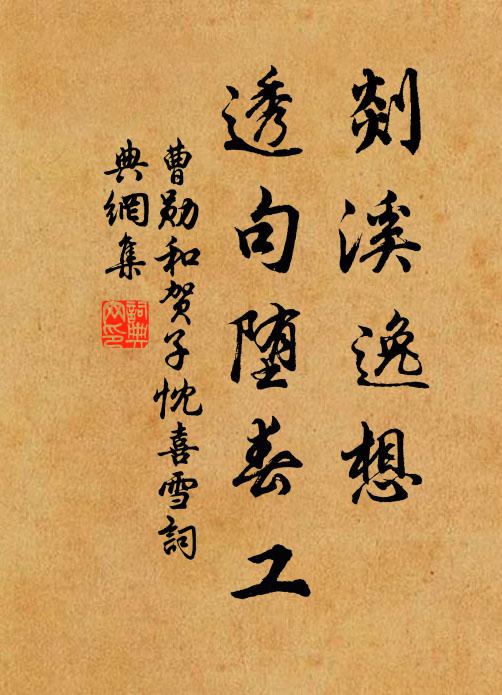 剡溪逸想
透句堕春工
曹勋和贺子忱喜雪詞
典網集
詞典
网印